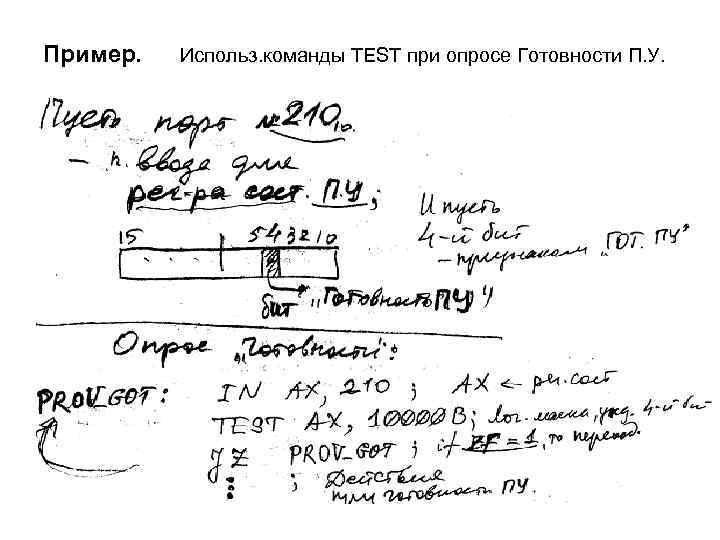 Пример. Использ.команды TEST при опросе Готовности П.У.
Пусть порт №210₁₀
– п. ввода для
рег-ра сост. П.У;
И пусть
4-й бит
– признаком „ГОТ. ПУ"
15 5 4 3 2 1 0
бит „Готовность ПУ"
Опрос „готовности":
PROV_GOT: IN AX, 210 ; AX ← рег.сост
TEST AX, 10000B; лог. маска, 4-й бит
JZ PROV_GOT ; if ZF = 1, то переход.
; Действия
при готовности ПУ.